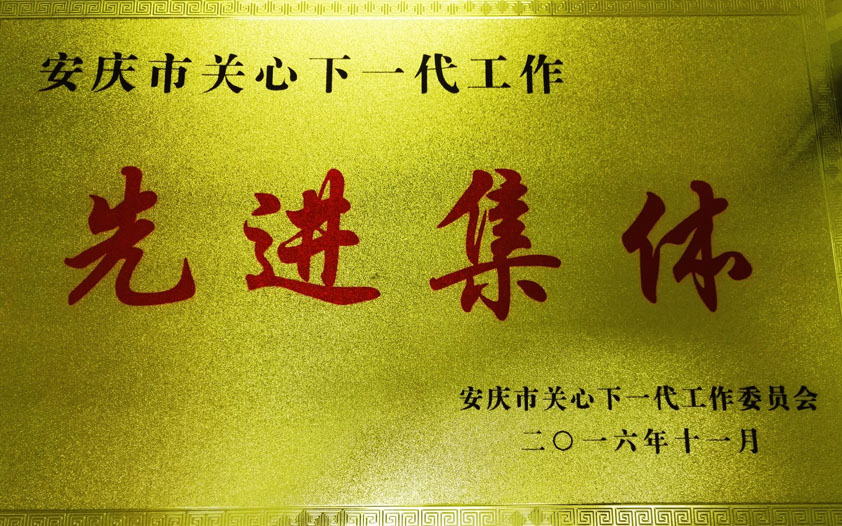 安庆市关心下一代工作
先进集体
安庆市关心下一代工作委员会
二〇一六年十一月